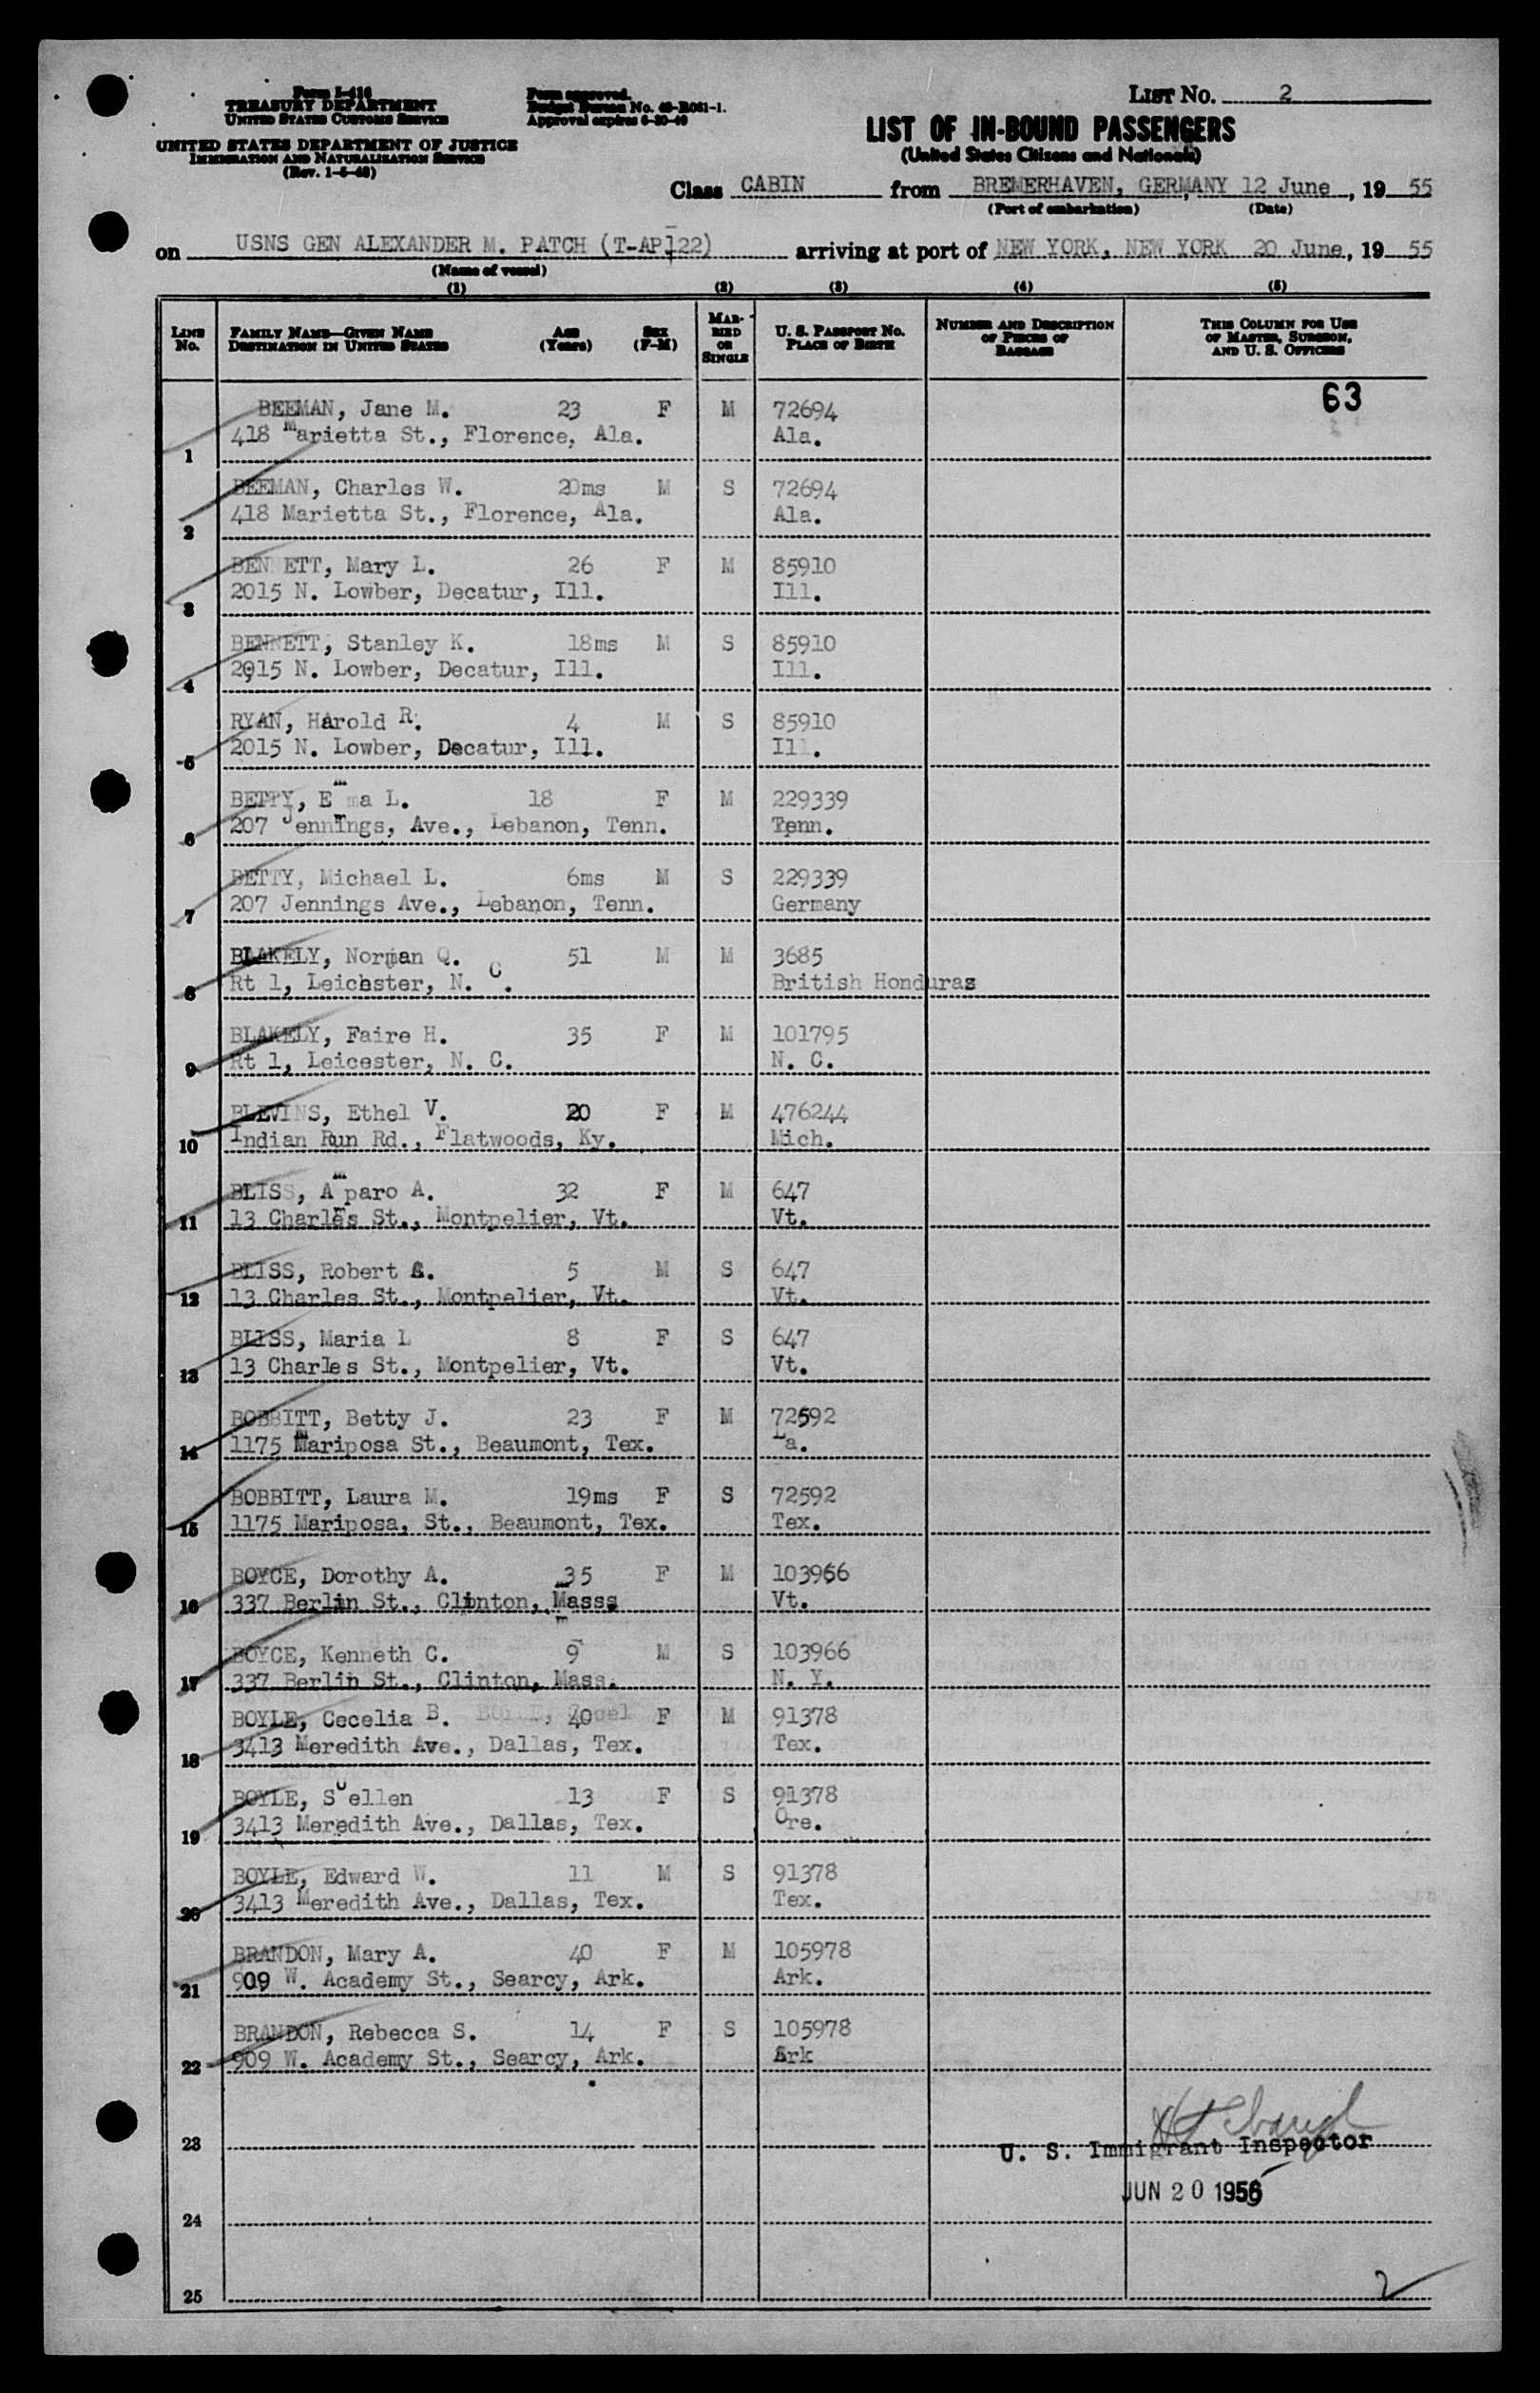 Form I-416
TREASURY DEPARTMENT
UNITED STATES CUSTOMS SERVICE
UNITED STATES DEPARTMENT OF JUSTICE
IMMIGRATION AND NATURALIZATION SERVICE
(Rev. 1-5-48)
Form approved.
Budget Bureau No. 43-R081-1.
Approval expires 6-30-49
LIST No. 2
LIST OF IN-BOUND PASSENGERS
(United States Citizens and Nationals)
Class CABIN from BREMERHAVEN, GERMANY, 12 June, 19 55
(Port of embarkation) (Date)
on USNS GEN ALEXANDER M. PATCH (T-AP-122) arriving at port of NEW YORK, NEW YORK 20 June, 19 55
(Name of vessel)
(1) (2) (3) (4) (5)
LINE No. FAMILY NAME—GIVEN NAME DESTINATION IN UNITED STATES AGE (Years) SEX (F-M) MARRIED OR SINGLE U. S. PASSPORT No. PLACE OF BIRTH NUMBER AND DESCRIPTION OF PIECES OF BAGGAGE THIS COLUMN FOR USE OF MASTER, SURGEON, AND U. S. OFFICERS
63
BEEMAN, Jane M. 23 F M 72694
1 418 Marietta St., Florence, Ala. Ala.
BEEMAN, Charles W. 20ms M S 72694
2 418 Marietta St., Florence, Ala. Ala.
BENNETT, Mary L. 26 F M 85910
3 2015 N. Lowber, Decatur, Ill. Ill.
BENNETT, Stanley K. 18ms M S 85910
4 2015 N. Lowber, Decatur, Ill. Ill.
RYAN, Harold R. 4 M S 85910
5 2015 N. Lowber, Decatur, Ill. Ill.
BETTY, Emma L. 18 F M 229339
6 207 Jennings, Ave., Lebanon, Tenn. Tenn.
BETTY, Michael L. 6ms M S 229339
7 207 Jennings Ave., Lebanon, Tenn. Germany
BLAKELY, Norman Q. 51 M M 3685
8 Rt 1, Leichster, N. C. British Honduras
BLAKELY, Faire H. 35 F M 101795
9 Rt 1, Leicester, N. C. N. C.
BLEVINS, Ethel V. 20 F M 476244
10 Indian Run Rd., Flatwoods, Ky. Mich.
BLISS, Amparo A. 32 F M 647
11 13 Charles St., Montpelier, Vt. Vt.
BLISS, Robert A. 5 M S 647
12 13 Charles St., Montpelier, Vt. Vt.
BLISS, Maria L 8 F S 647
13 13 Charles St., Montpelier, Vt. Vt.
BOBBITT, Betty J. 23 F M 72592
14 1175 Mariposa St., Beaumont, Tex. La.
BOBBITT, Laura M. 19ms F S 72592
15 1175 Mariposa, St., Beaumont, Tex. Tex.
BOYCE, Dorothy A. 35 F M 103966
16 337 Berlin St., Clinton, Masss Vt.
BOYCE, Kenneth C. 9 M S 103966
17 337 Berlin St., Clinton, Mass. N. Y.
BOYLE, Cecelia B. 40 F M 91378
18 3413 Meredith Ave., Dallas, Tex. Tex.
BOYLE, Suellen 13 F S 91378
19 3413 Meredith Ave., Dallas, Tex. Ore.
BOYLE, Edward W. 11 M S 91378
20 3413 Meredith Ave., Dallas, Tex. Tex.
BRANDON, Mary A. 40 F M 105978
21 909 W. Academy St., Searcy, Ark. Ark.
BRANDON, Rebecca S. 14 F S 105978
22 909 W. Academy St., Searcy, Ark. Ark
23
U. S. Immigrant Inspector
JUN 20 1955
24
25
2